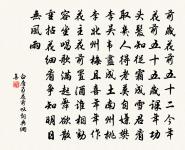 前歲花前五十二今年
花前五十五歲課年功
頭髮知從霜成雪君看
取幾人得老莫自嫌樊
李吳韋盡成土南州桃
李北州梅且喜年年作
花主花前置酒誰相勸
容坐唱歌滿起舞欲散
重拈花細看爭知明日
無風雨
白居易花前嘆詞典網
集